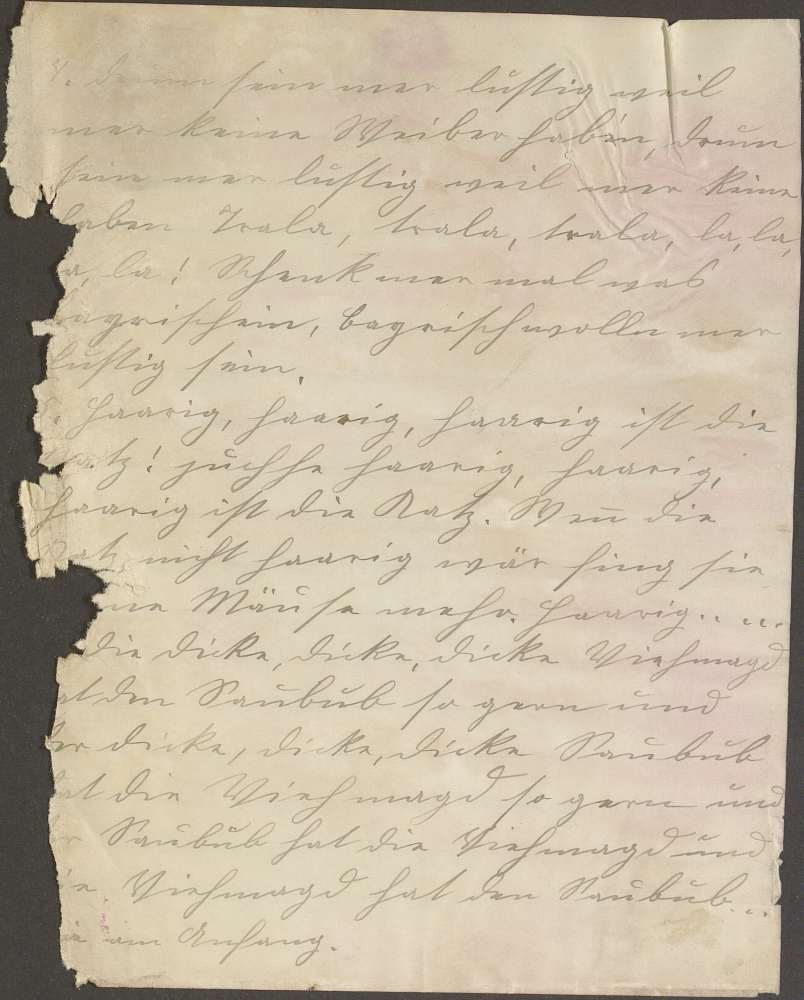 4. drum sein mer lustig weil
mer keine Weiber haben, drum
sein mer lustig weil mer keine
haben Trala, trala, trala, la, la,
a, la! Schenk mer mal was
bayrisch ein, bayrisch wolln mer
lustig sein.
5. Haarig, haarig, haarig ist die
atz! juchhe haarig, haarig,
haarig ist die Katz. Weñ die
Katz nicht haarig wär fing sie
ne Mäuse mehr. Haarig.. ...
die dicke, dicke, dicke Viehmagd
at den Saubub so gern und
der dicke, dicke, dicke Saubub
hat die Viehmagd so gern und
r Saubub hat die Viehmagd und
ie Viehmagd hat den Saubub...
ie am Anfang.